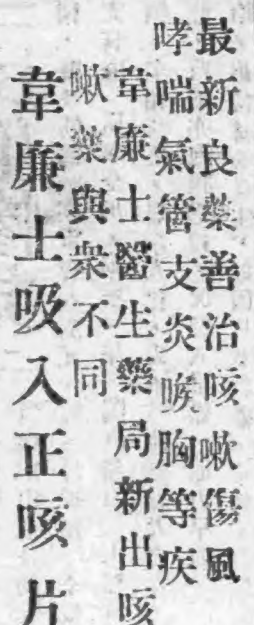 最新良藥善治咳嗽傷風
哮喘氣管支炎喉胸等疾
韋廉士醫生藥局新出咳
嗽藥與衆不同
韋廉士吸入正咳片